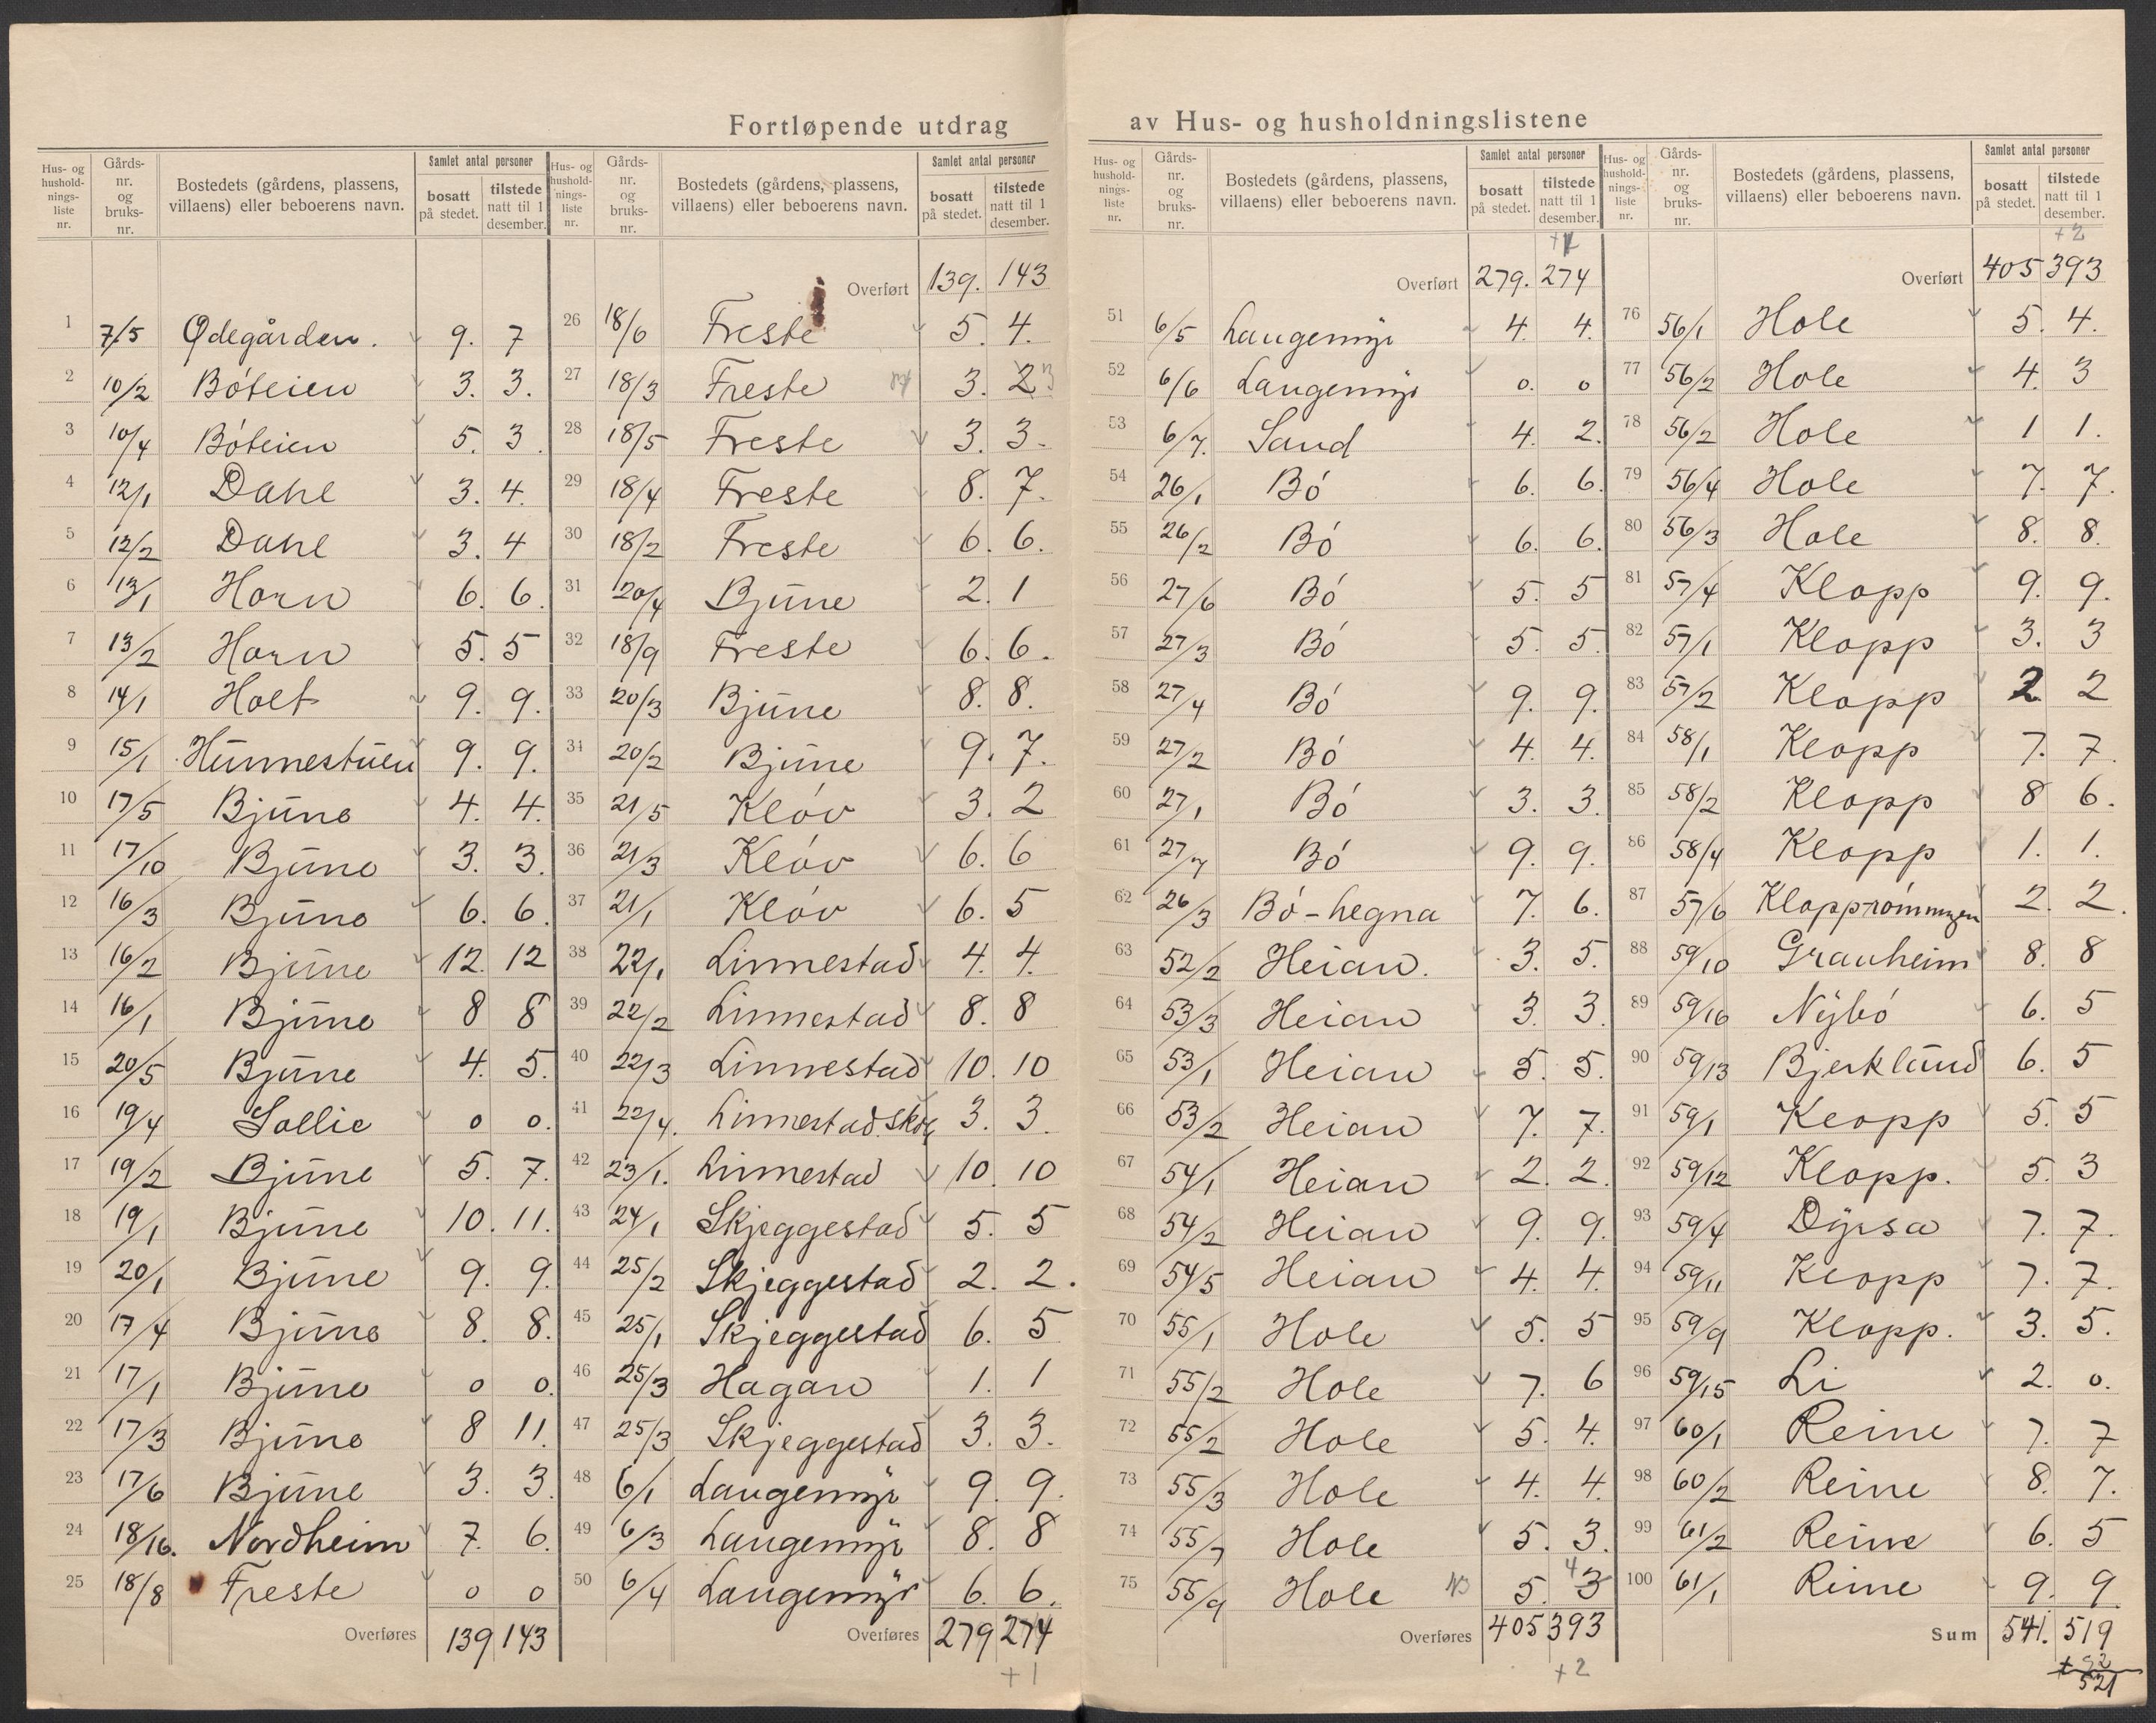 Fortløpende utdrag av Hus- og husholdningslistene
Hus- og hushold- nings- liste nr. | Gårds- nr. og bruks- nr. | Bostedets (gårdens, plassens, villaens) eller beboerens navn. | Samlet antal personer | bosatt på stedet. | tilstede natt til 1 desember.
1 7/5 Ødegården. 9. 7
2 10/2 Böteien 3. 3.
3 10/4 Böteien 5. 3.
4 12/1 Dahl 3. 4.
5 12/2 Dahl 3. 4
6 13/1 Horn 6. 6.
7 13/2 Horn 5. 5
8 14/1 Holt 9. 9.
9 15/1 Hunnestuen 9. 9.
10 17/5 Bjune 4. 4.
11 17/10 Bjune 3. 3.
12 16/3 Bjune 6. 6.
13 16/2 Bjune 12. 12
14 16/1 Bjune 8 8
15 20/5 Bjune 4. 5.
16 19/4 Sollie 0 0.
17 19/2 Bjune 5. 7.
18 19/1 Bjune 10. 11.
19 20/1 Bjune 9. 9.
20 17/4 Bjune 8. 8.
21 17/1 Bjune 0 0.
22 17/3 Bjune 8 11.
23 17/6 Bjune 3. 3.
24 18/16. Nordheim 7. 6.
25 18/8 Freste 0 0
Overføres 139 143
Hus- og hushold- nings- liste nr. | Gårds- nr. og bruks- nr. | Bostedets (gårdens, plassens, villaens) eller beboerens navn. | Samlet antal personer | bosatt på stedet. | tilstede natt til 1 desember.
Overført 139. 143
26 18/6 Freste 5. 4.
27 18/3 Freste 3. 2 3
28 18/5 Freste 3. 3.
29 18/4 Freste 8. 7.
30 18/2 Freste 6. 6.
31 20/4 Bjune 2. 1
32 18/9 Freste 6. 6.
33 20/3 Bjune 8. 8.
34 20/2 Bjune 9. 7.
35 21/5 Klöv 3. 2
36 21/3 Klöv 6. 6
37 21/1 Klöv 6. 5
38 22/1 Linnestad 4. 4.
39 22/2 Linnestad 8. 8
40 22/3 Linnestad 10. 10
41 22/4. Linnestad skog 3. 3.
42 23/1. Linnestad 10. 10
43 24/1 Skjeggestad 5. 5
44 25/2 Skjeggestad 2. 2.
45 25/1 Skjeggestad 6. 5
46 25/3 Hagan 1. 1
47 25/3 Skjeggestad 3. 3.
48 6/1 Langemyr 9. 9.
49 6/3 Langemyr 8. 8
50 6/4 Langemyr 6. 6.
Overføres 279 274
+ 1
Hus- og hushold- nings- liste nr. | Gårds- nr. og bruks- nr. | Bostedets (gårdens, plassens, villaens) eller beboerens navn. | Samlet antal personer | bosatt på stedet. | tilstede natt til 1 desember.
Overført 279. 274
51 6/5 Langemyr 4. 4.
52 6/6 Langemyr 0. 0
53 6/7. Sand 4. 2.
54 26/1 Bó 6. 6.
55 26/2 Bó 6. 6.
56 27/6 Bó 5. 5
57 27/3 Bó 5. 5.
58 27/4 Bó 9. 9.
59 27/2 Bó 4. 4.
60 27/1 Bó 3. 3.
61 27/7 Bó 9. 9.
62 26/3 Bó-hegna 7. 6.
63 52/2 Heian. 3. 5.
64 53/3 Heian 3. 3.
65 53/1 Heian 5. 5.
66 53/2 Heian 7. 7.
67 54/1 Heian 2. 2.
68 54/2 Heian 9. 9.
69 54/5 Heian 4. 4.
70 55/1 Hole 5. 5
71 55/2 Hole 7. 6
72 55/2 Hole 5. 4.
73 55/3 Hole 4. 4.
74 55/7 Hole 5. 3.
75 55/9 Hole NB 5. 4 3
Overføres 405 393
+ 2
Hus- og hushold- nings- liste nr. | Gårds- nr. og bruks- nr. | Bostedets (gårdens, plassens, villaens) eller beboerens navn. | Samlet antal personer | bosatt på stedet. | tilstede natt til 1 desember.
+ 2
Overført 405 393
76 56/1 Hole 5. 4.
77 56/2 Hole 4. 3
78 56/2 Hole 1 1.
79 56/4 Hole 7. 7.
80 56/3 Hole 8. 8.
81 57/4 Klopp 9. 9.
82 57/1 Klopp 3. 3
83 57/2 Klopp 2 2
84 58/1 Klopp 7. 7.
85 58/2 Klopp 8 6.
86 58/4 Klopp 1. 1.
87 57/6 Klopprömningen 2. 2.
88 59/10 Granheim 8. 8
89 59/16 Nybó 6. 5
90 59/13 Bjerklund 6. 5
91 59/1 Klopp 5. 5
92 59/12 Klopp. 5. 3
93 59/4 Dyrsa 7. 7.
94 59/11 Klopp 7. 7.
95 59/9 Klopp. 3. 5.
96 59/15 Li 2. 0.
97 60/1 Reine 7. 7
98 60/2 Reine 8. 7.
99 61/2 Reine 6. 5
100 61/1 Reine 9. 9.
Sum 541. 519
+ 2
521